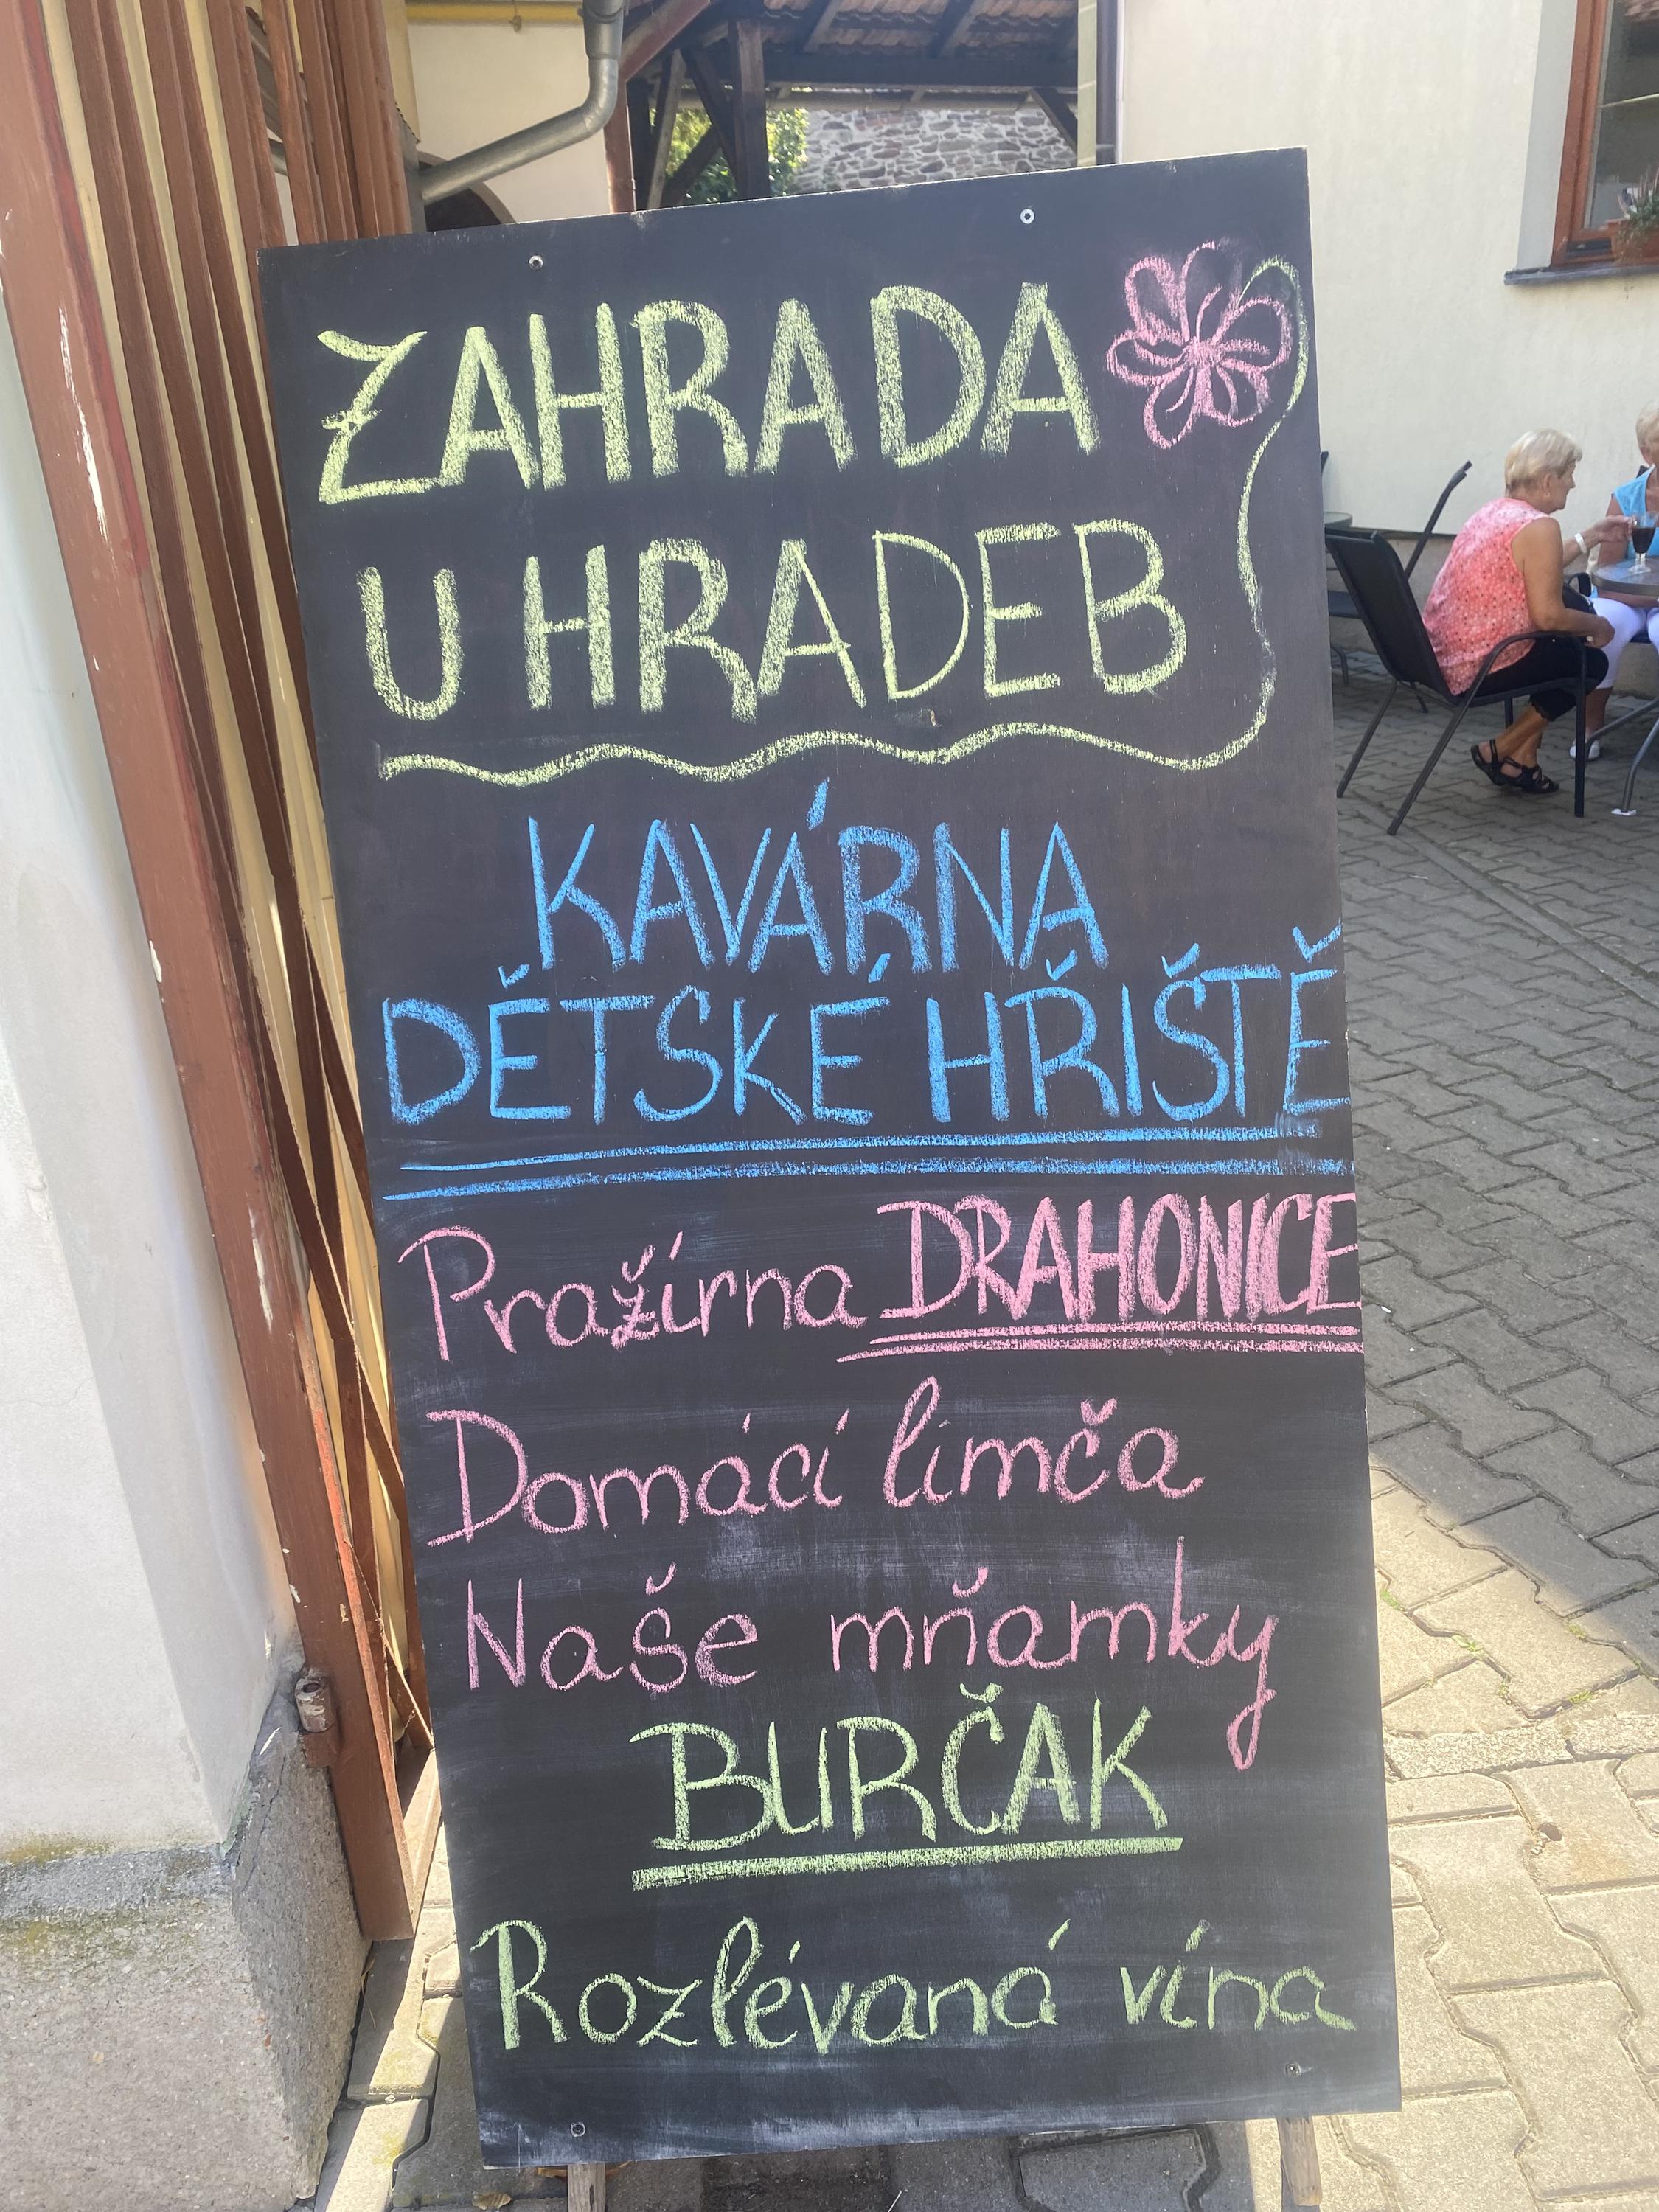 ZAHRADA
U HRADEB
KAVÁRNA
DĚTSKÉ HŘIŠTĚ
Pražírna DRAHONICE
Domácí limča
Naše mňamky
BURČAK
Rozlévaná vína